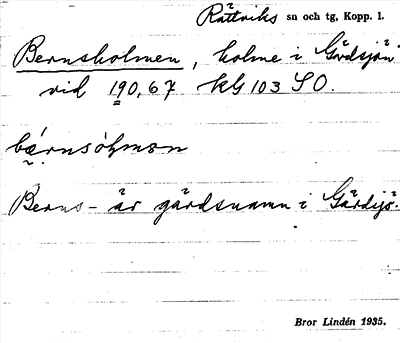 Rättviks sn och tg, Kopp. l.
Bernsholmen, holme i Gärdsjön
vid 190,67 kG 103 SO.
bǽrnsóɫmən
Berns- är gårdsnamn i Gärdsjö.
Bror Lindén 1935.